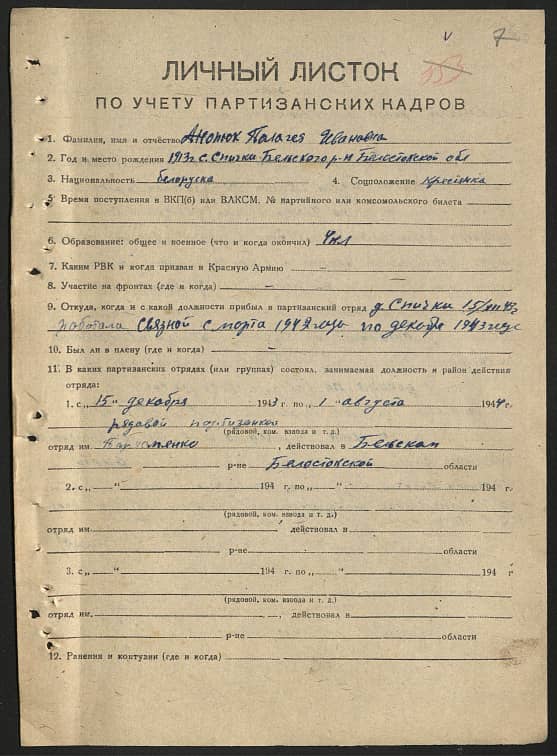 7
153
ЛИЧНЫЙ ЛИСТОК
ПО УЧЕТУ ПАРТИЗАНСКИХ КАДРОВ
1. Фамилия, имя и отчество Анонюк Палагея Ивановна
2. Год и место рождения 1913 г. с. Спички Бельского р-н Белостокской обл
3. Национальность белоруска 4. Соцположение крестянка
5. Время поступления в ВКП(б) или ВЛКСМ, № партийного или комсомольского билета
6. Образование: общее и военное (что и когда окончил) 4 кл
7. Каким РВК и когда призван в Красную Армию –
8. Участие на фронтах (где и когда) –
9. Откуда, когда и с какой должности прибыл в партизанский отряд д. Спички 15/
работала связной с марта 1942 года по декабрь 1943 года
10. Был ли в плену (где и когда) –
11. В каких партизанских отрядах (или группах) состоял, занимаемая должность и район действия
отряда:
1. с „15" декабря 1943 г. по „1" августа 1944 г.
рядовой партизанкой
(рядовой, ком. взвода и т. д.)
отряд им. , действовал в Бельском
р-не Белостокской области
2. с „ " 194 г. по „ " 194 г.
(рядовой, ком. взвода и т. д.)
отряд им. действовал в
р-не области
3. с „ " 194 г. по „ " 194 г
(рядовой, ком. взвода и т. д.)
отряд им. , действовал в
р-не области
12. Ранения и контузии (где и когда)